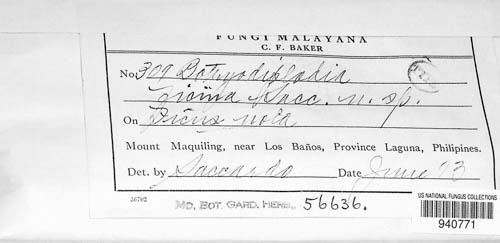 FUNGI MALAYANA
C. F. BAKER
No. 309 Botryodiplodia
ficina Sacc. n. sp.
On Ficus nota
Mount Maquiling, near Los Baños, Province Laguna, Philipines.
Det. by Saccardo Date June 13
36702
MO. BOT. GARD. HERB. 56636.
US NATIONAL FUNGUS COLLECTIONS
940771